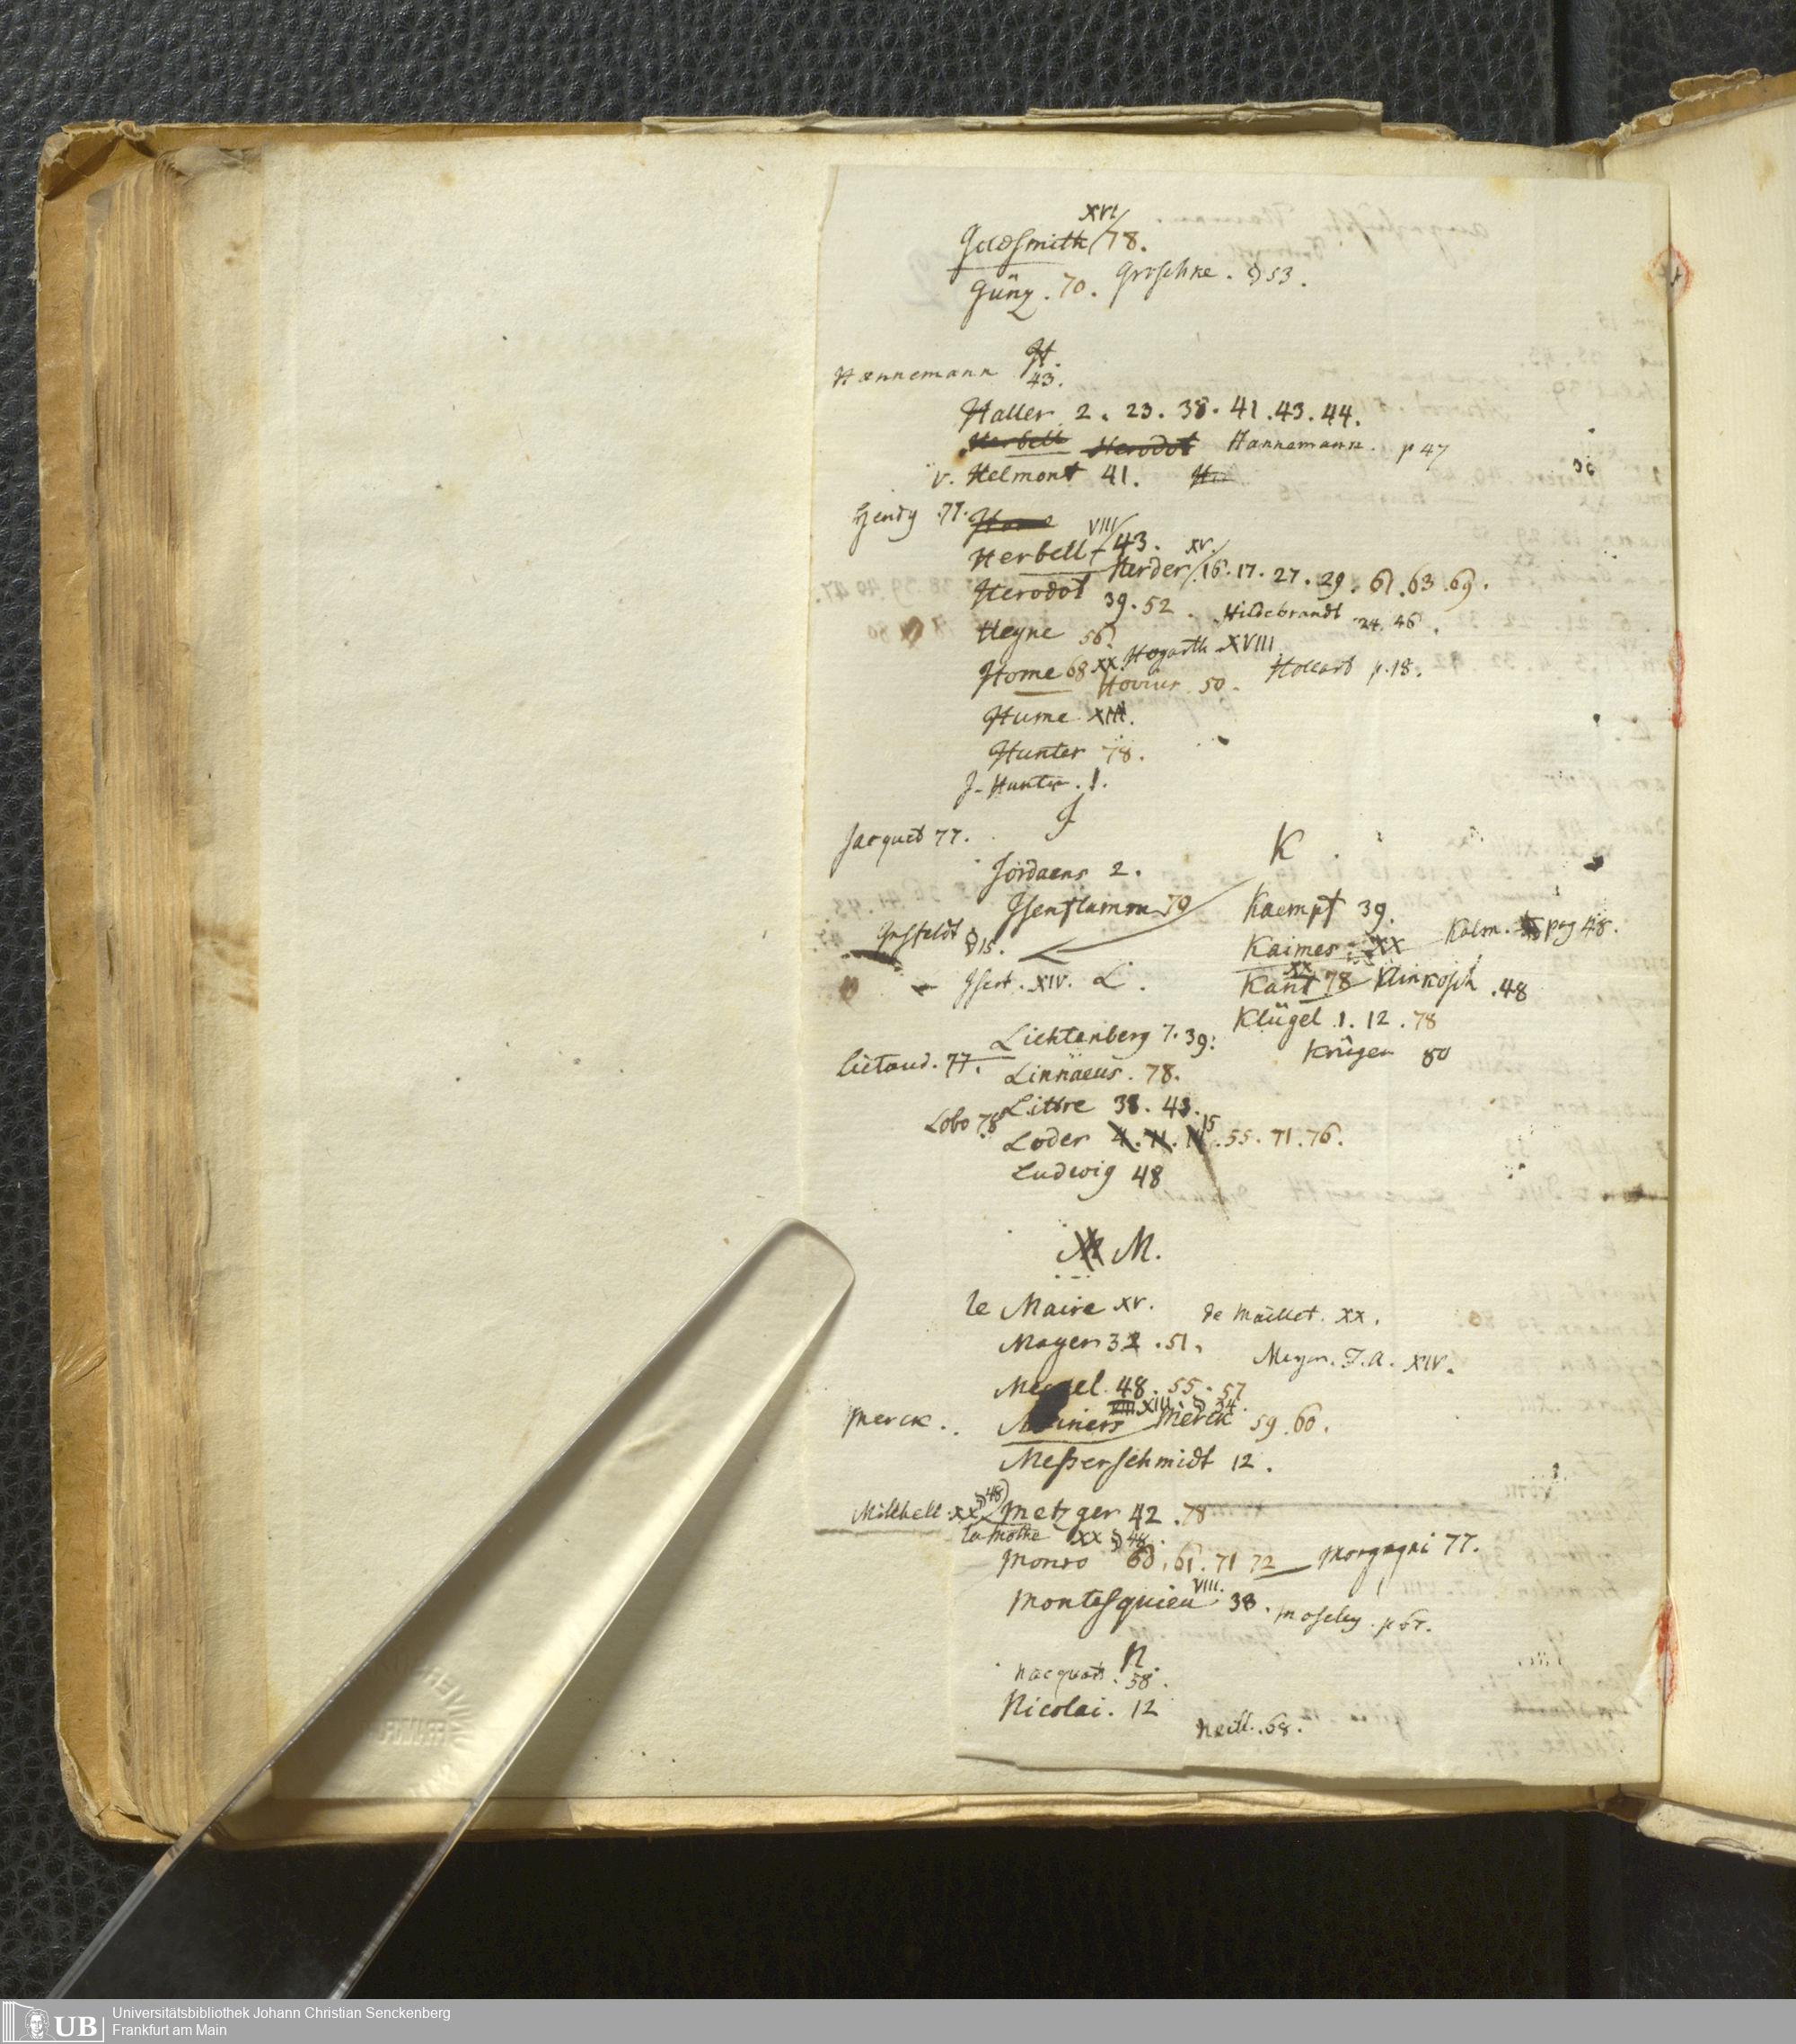 XVI
Goldsmith 78.
Günz. 70. Groschke. § 53.
H.
Hænnemann 43.
Haller 2. 23. 38. 41. 43. 44.
Herbell Herodot Hannemann. p 47
v. Helmont 41.
Hendy 77. Home
Herbell VIII 43.
Herder XV. 16. 17. 27. 29. 61. 63. 69.
Herodot 39. 52.
Hildebrandt 24. 46.
Heyne 56.
Hogarth XVIII
Home 68 XX. Hovius 50. Hollard p. 18.
Hume XIII.
Hunter 78.
J. Hunter. 1.
J
Jacquet 77.
Jordaens 2.
Isenflamm 79
§ 15.
Isert. XIV.
K
Kaempf 39.
Kaimes XX Kalm. pag 48.
Kant XX 78 Klinkosch. 48
Klügel 1. 12. 78
Krüger 80
L.
Lichtenberg 7. 39.
Lieutaud. 77.
Linnaeus. 78.
Littre 38. 43.
Lobo 78
Loder 4. 11. 14 15. 55. 71. 76.
Ludwig 48
M.
le Maire XV. de Maillet. XX.
Mayer 32. 51.
Meyer. F. A. XIV.
Meckel 48. 55. 57
Merck.
Meiners VIII XIII. § 34. Merck 59. 60.
Meßerschmidt 12.
Mitchell XX § 48
Metzger 42. 78
la Mothe XX § 48.
Monro 60. 61. 71 72 Morgagni 77.
Montesquieu VIII. 38. Moseley. p 65.
N.
Nacquart. 58.
Nicolai. 12
Neill. 68.
UB
Universitätsbibliothek Johann Christian Senckenberg
Frankfurt am Main